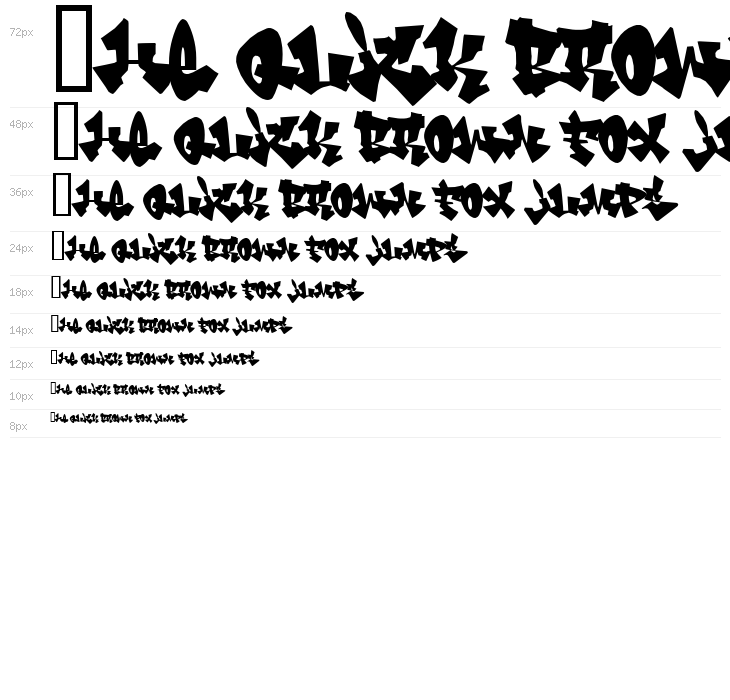 72px ▯he quick brow
48px ▯he quick brown fox ju
36px ▯he quick brown fox jumps
24px ▯he quick brown fox jumps
18px ▯he quick brown fox jumps
14px ▯he quick brown fox jumps
12px ▯he quick brown fox jumps
10px ▯he quick brown fox jumps
8px ▯he quick brown fox jumps